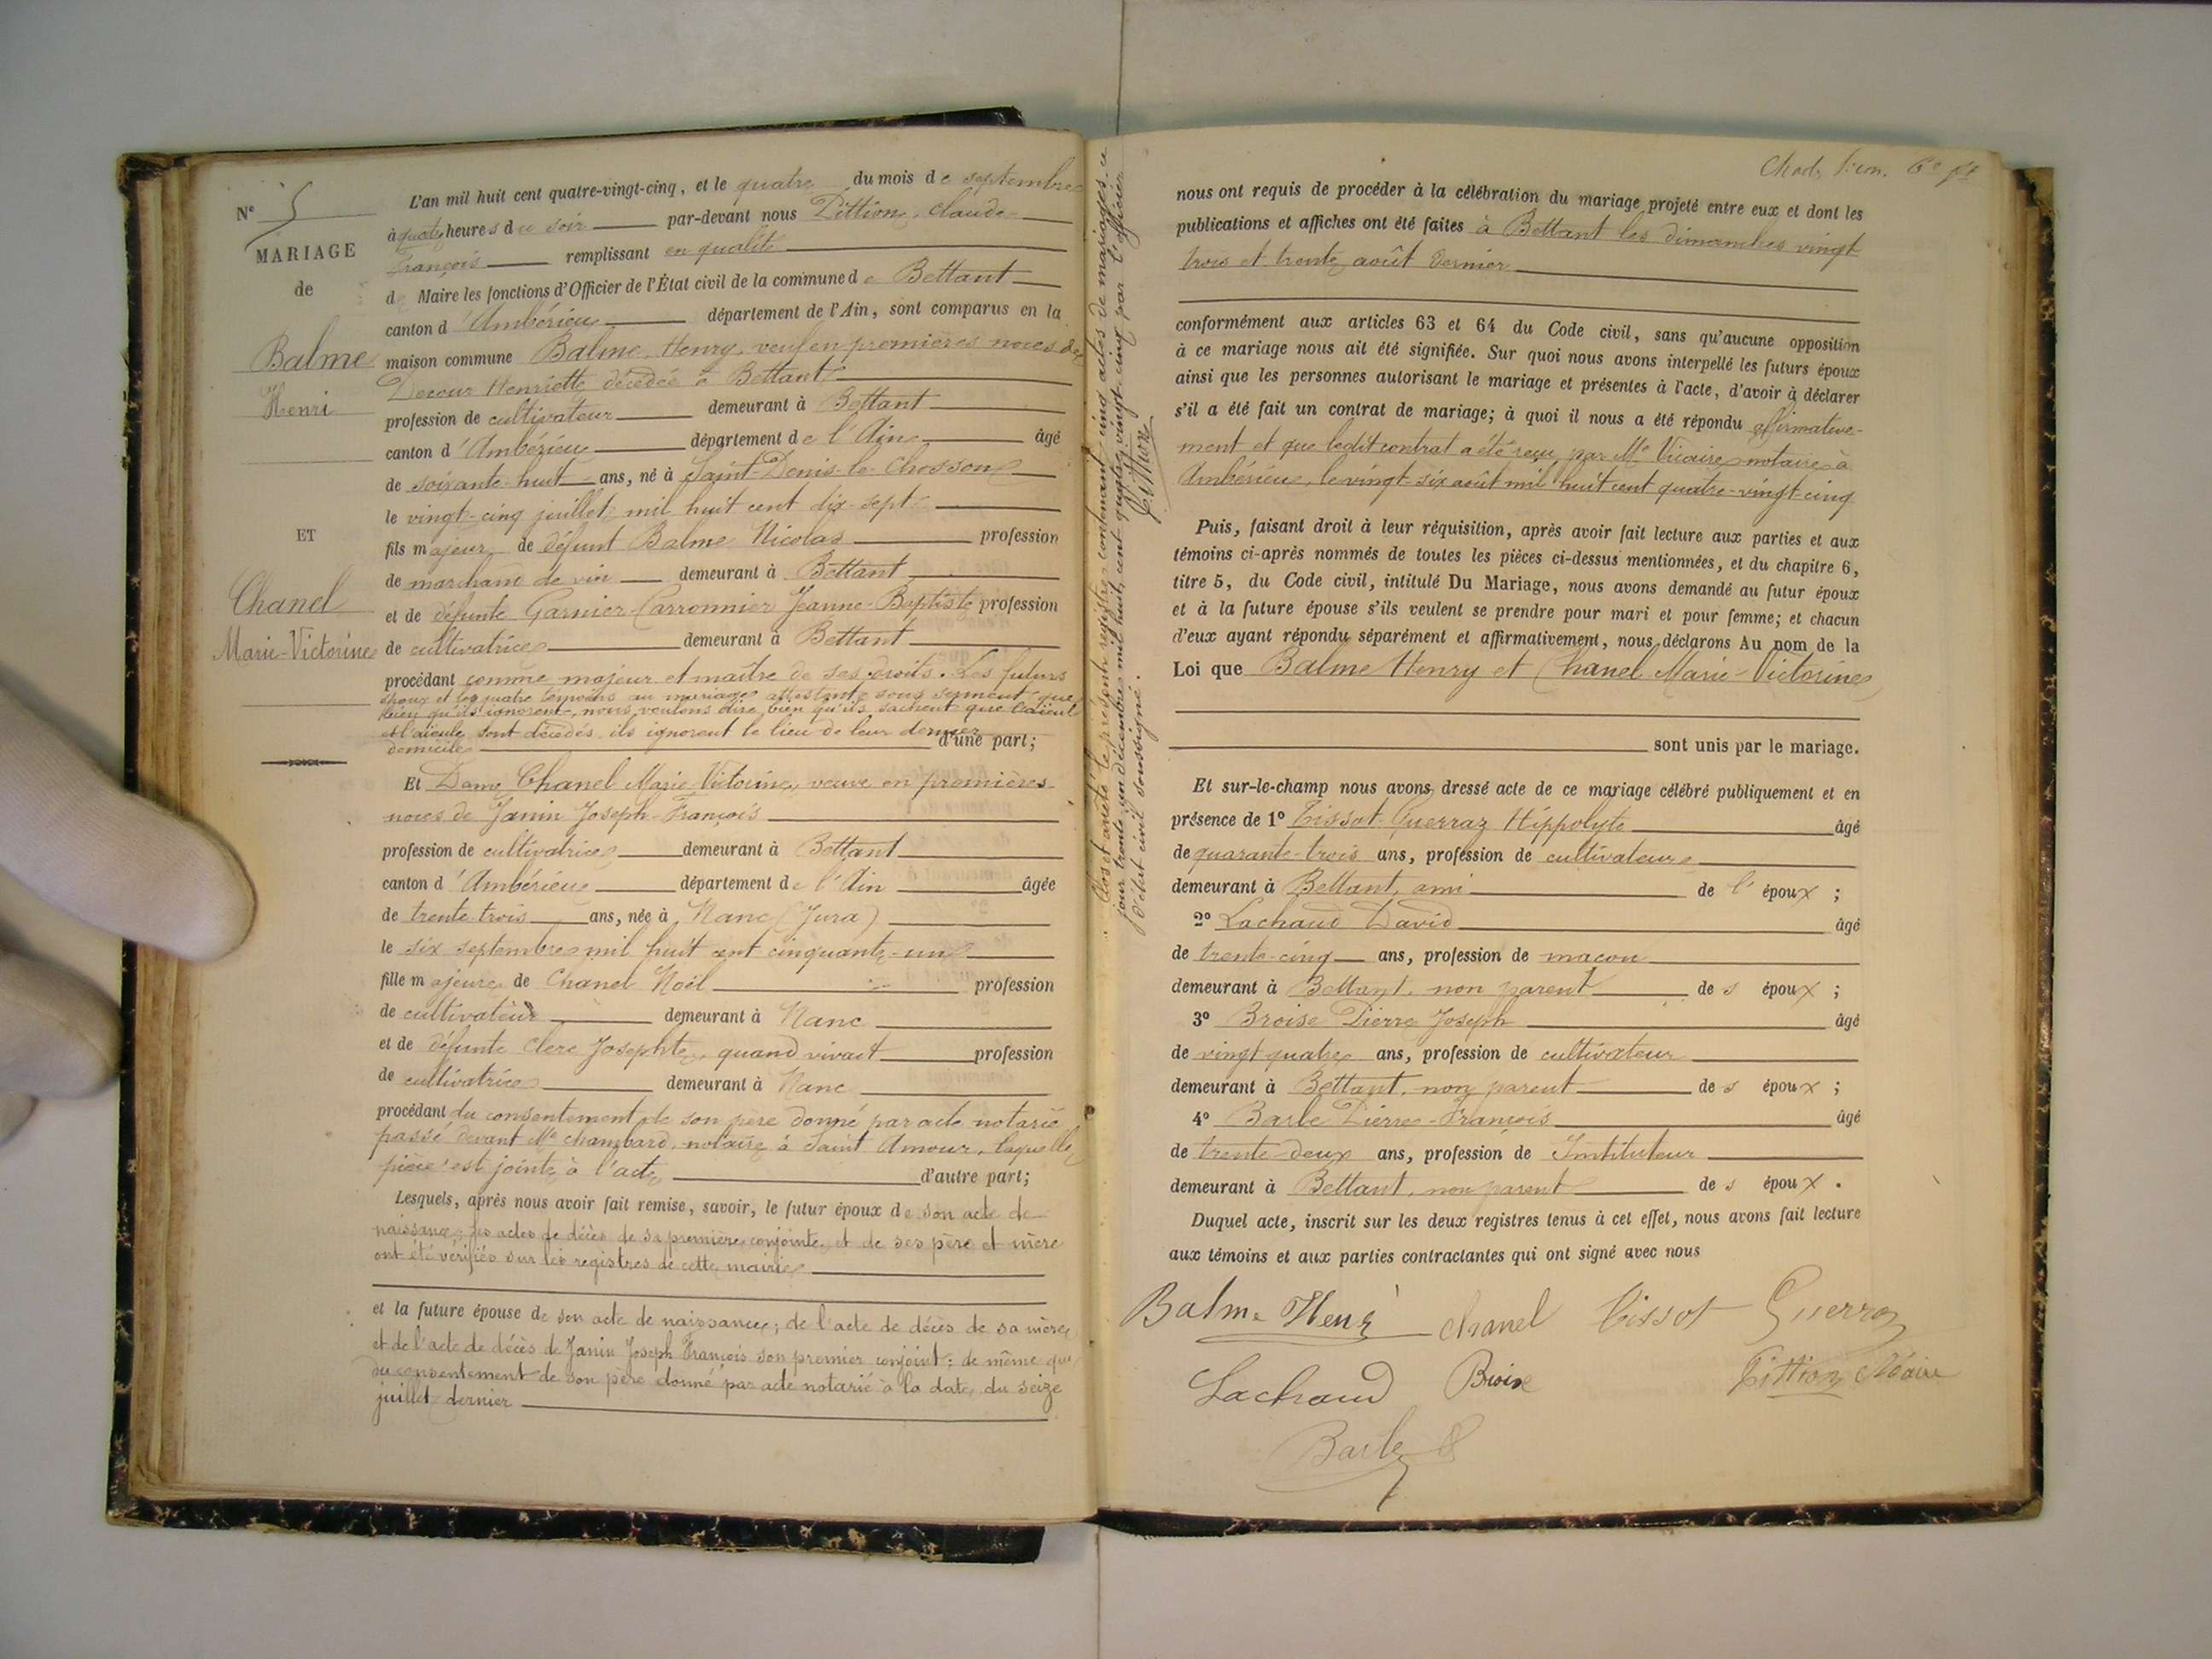 N° 5
MARIAGE
de
Balme
Henri
ET
Chanel
Marie-Victorine
L'an mil huit cent quatre-vingt-cinq, et le quatre du mois de septembre
à quatre heures du soir par-devant nous Pittion, Claude
François remplissant en qualité
de Maire les fonctions d'Officier de l'État civil de la commune de Bettant
canton d'Ambérieu département de l'Ain, sont comparus en la
maison commune Balme, Henry, veuf en premières noces de
Decour Henriette décédée à Bettant
profession de cultivateur demeurant à Bettant
canton d'Ambérieu département de l'Ain âgé
de soixante-huit ans, né à Saint-Denis-le-Chosson
le vingt-cinq juillet mil huit cent dix-sept
fils majeur de défunt Balme Nicolas profession
de marchand de vin demeurant à Bettant
et de défunte Garnier-Carronnier Jeanne-Baptiste profession
de cultivatrice demeurant à Bettant
procédant comme majeur et maître de ses droits. Les futurs
époux et les quatre témoins au mariage attestent sous serment que
bien qu'ils ignorent, nous voulons dire bien qu'ils sachent que l'aïeul
et l'aïeule sont décédés, ils ignorent le lieu de leur dernier
domicile d'une part;
Et Dame Chanel Marie-Victorine, veuve en premières
noces de Janin Joseph-François
profession de cultivatrice demeurant à Bettant
canton d'Ambérieu département de l'Ain âgée
de trente-trois ans, née à Nanc (Jura)
le six septembre mil huit cent cinquante-un
fille majeure de Chanel Noël profession
de cultivateur demeurant à Nanc
et de défunte Clerc Josephte, quand vivait profession
de cultivatrice demeurant à Nanc
procédant du consentement de son père donné par acte notarié
passé devant Me Chambard, notaire à Saint Amour, laquelle
pièce est jointe à l'acte d'autre part;
Lesquels, après nous avoir fait remise, savoir, le futur époux de son acte de
naissance; les actes de décès de sa première conjointe et de ses père et mère
ont été vérifiés sur les registres de cette mairie
et la future épouse de son acte de naissance; de l'acte de décès de sa mère
et de l'acte de décès de Janin Joseph François son premier conjoint; de même que
du consentement de son père donné par acte notarié à la date du seize
juillet dernier
Clos et arrêté le présent registre contenant cinq actes de mariages ce
jour trente-un décembre mil huit cent quatre-vingt-cinq par l'officier
d'état civil soussigné.
Pittion
nous ont requis de procéder à la célébration du mariage projeté entre eux et dont les
publications et affiches ont été faites à Bettant les dimanches vingt
trois et trente août dernier
conformément aux articles 63 et 64 du Code civil, sans qu'aucune opposition
à ce mariage nous ait été signifiée. Sur quoi nous avons interpellé les futurs époux
ainsi que les personnes autorisant le mariage et présentes à l'acte, d'avoir à déclarer
s'il a été fait un contrat de mariage; à quoi il nous a été répondu affirmative-
ment et que ledit contrat a été reçu par Me Vicaire notaire à
Ambérieu, le vingt-six août mil huit cent quatre-vingt-cinq
Puis, faisant droit à leur réquisition, après avoir fait lecture aux parties et aux
témoins ci-après nommés de toutes les pièces ci-dessus mentionnées, et du chapitre 6,
titre 5, du Code civil, intitulé Du Mariage, nous avons demandé au futur époux
et à la future épouse s'ils veulent se prendre pour mari et pour femme; et chacun
d'eux ayant répondu séparément et affirmativement, nous déclarons Au nom de la
Loi que Balme Henry et Chanel Marie-Victorine
sont unis par le mariage.
Et sur-le-champ nous avons dressé acte de ce mariage célébré publiquement et en
présence de 1° Tissot-Guerraz Hippolyte âgé
de quarante-trois ans, profession de cultivateur
demeurant à Bettant, ami de l'époux;
2° Lachaud David âgé
de trente-cinq ans, profession de maçon
demeurant à Bettant, non parent des époux;
3° Broise Pierre Joseph âgé
de vingt-quatre ans, profession de cultivateur
demeurant à Bettant, non parent des époux;
4° Barle Pierre-François âgé
de trente-deux ans, profession de Instituteur
demeurant à Bettant, non parent des époux.
Duquel acte, inscrit sur les deux registres tenus à cet effet, nous avons fait lecture
aux témoins et aux parties contractantes qui ont signé avec nous
Balme Henri Chanel Tissot Guerraz
Lachaud Broise Pittion Maire
Barle